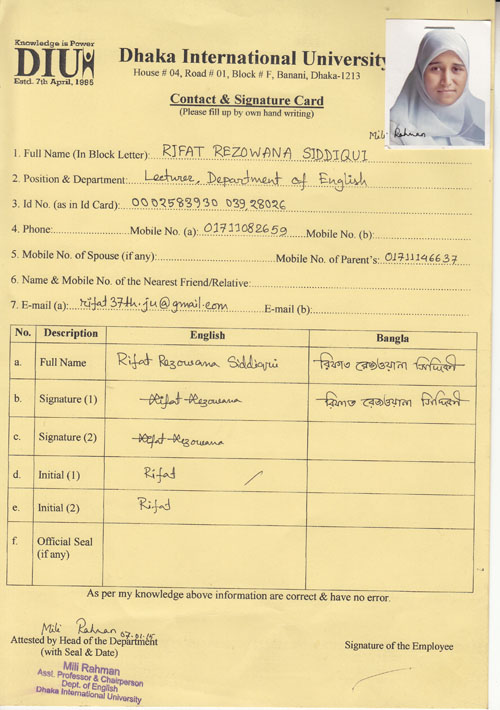 Knowledge is Power
DIU
Estd. 7th April, 1995
Dhaka International University
House # 04, Road # 01, Block # F, Banani, Dhaka-1213
Contact & Signature Card
(Please fill up by own hand writing)
Mili Rahman
1. Full Name (In Block Letter): RIFAT REZOWANA SIDDIQUI
2. Position & Department: Lecturer, Department of English
3. Id No. (as in Id Card): 0002583930 039,28026
4. Phone: Mobile No. (a): 01711082659 Mobile No. (b):
5. Mobile No. of Spouse (if any): Mobile No. of Parent's: 01711146637
6. Name & Mobile No. of the Nearest Friend/Relative:
7. E-mail (a): rifat37th.ju@gmail.com E-mail (b):
No. Description English Bangla
a. Full Name Rifat Rezowana Siddiqui রিফাত রেজওয়ানা সিদ্দিকী
b. Signature (1) Rifat Rezowana রিফাত রেজওয়ানা সিদ্দিকী
c. Signature (2) Rifat Rezowana
d. Initial (1) Rifat
e. Initial (2) Rifat
f. Official Seal (if any)
As per my knowledge above information are correct & have no error.
Mili Rahman 07.01.15
Attested by Head of the Department Signature of the Employee
(with Seal & Date)
Mili Rahman
Asst. Professor & Chairperson
Dept. of English
Dhaka International University